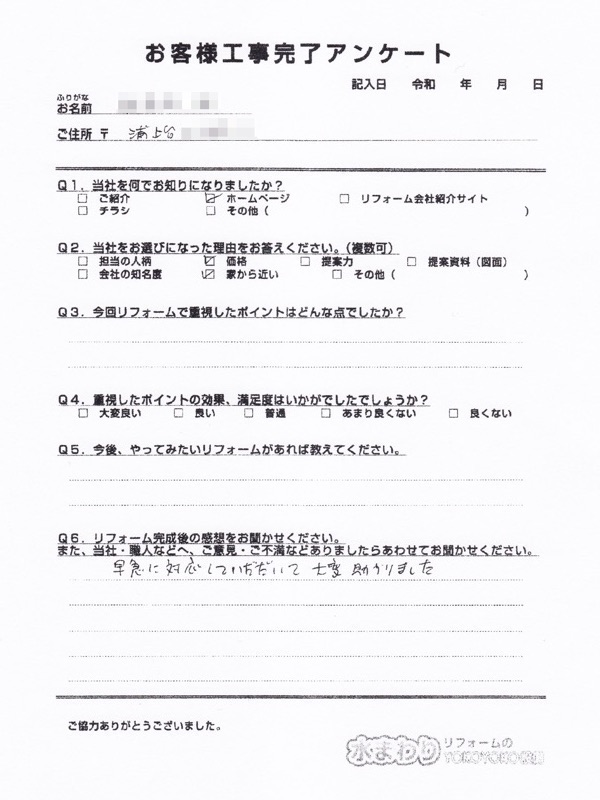 お客様工事完了アンケート
記入日 令和 年 月 日
ふりがな
お名前
ご住所 〒 浦上台
Q1．当社を何でお知りになりましたか？
□ ご紹介 ☑ ホームページ □ リフォーム会社紹介サイト
□ チラシ □ その他（ ）
Q2．当社をお選びになった理由をお答えください。（複数可）
□ 担当の人柄 ☑ 価格 □ 提案力 □ 提案資料（図面）
□ 会社の知名度 ☑ 家から近い □ その他（ ）
Q3．今回リフォームで重視したポイントはどんな点でしたか？
Q4．重視したポイントの効果、満足度はいかがでしたでしょうか？
□ 大変良い □ 良い □ 普通 □ あまり良くない □ 良くない
Q5．今後、やってみたいリフォームがあれば教えてください。
Q6．リフォーム完成後の感想をお聞かせください。
また、当社・職人などへ、ご意見・ご不満などありましたらあわせてお聞かせください。
早急に対応していただいて 大変 助かりました
ご協力ありがとうございました。
水まわり リフォームの
YOKOYOKO